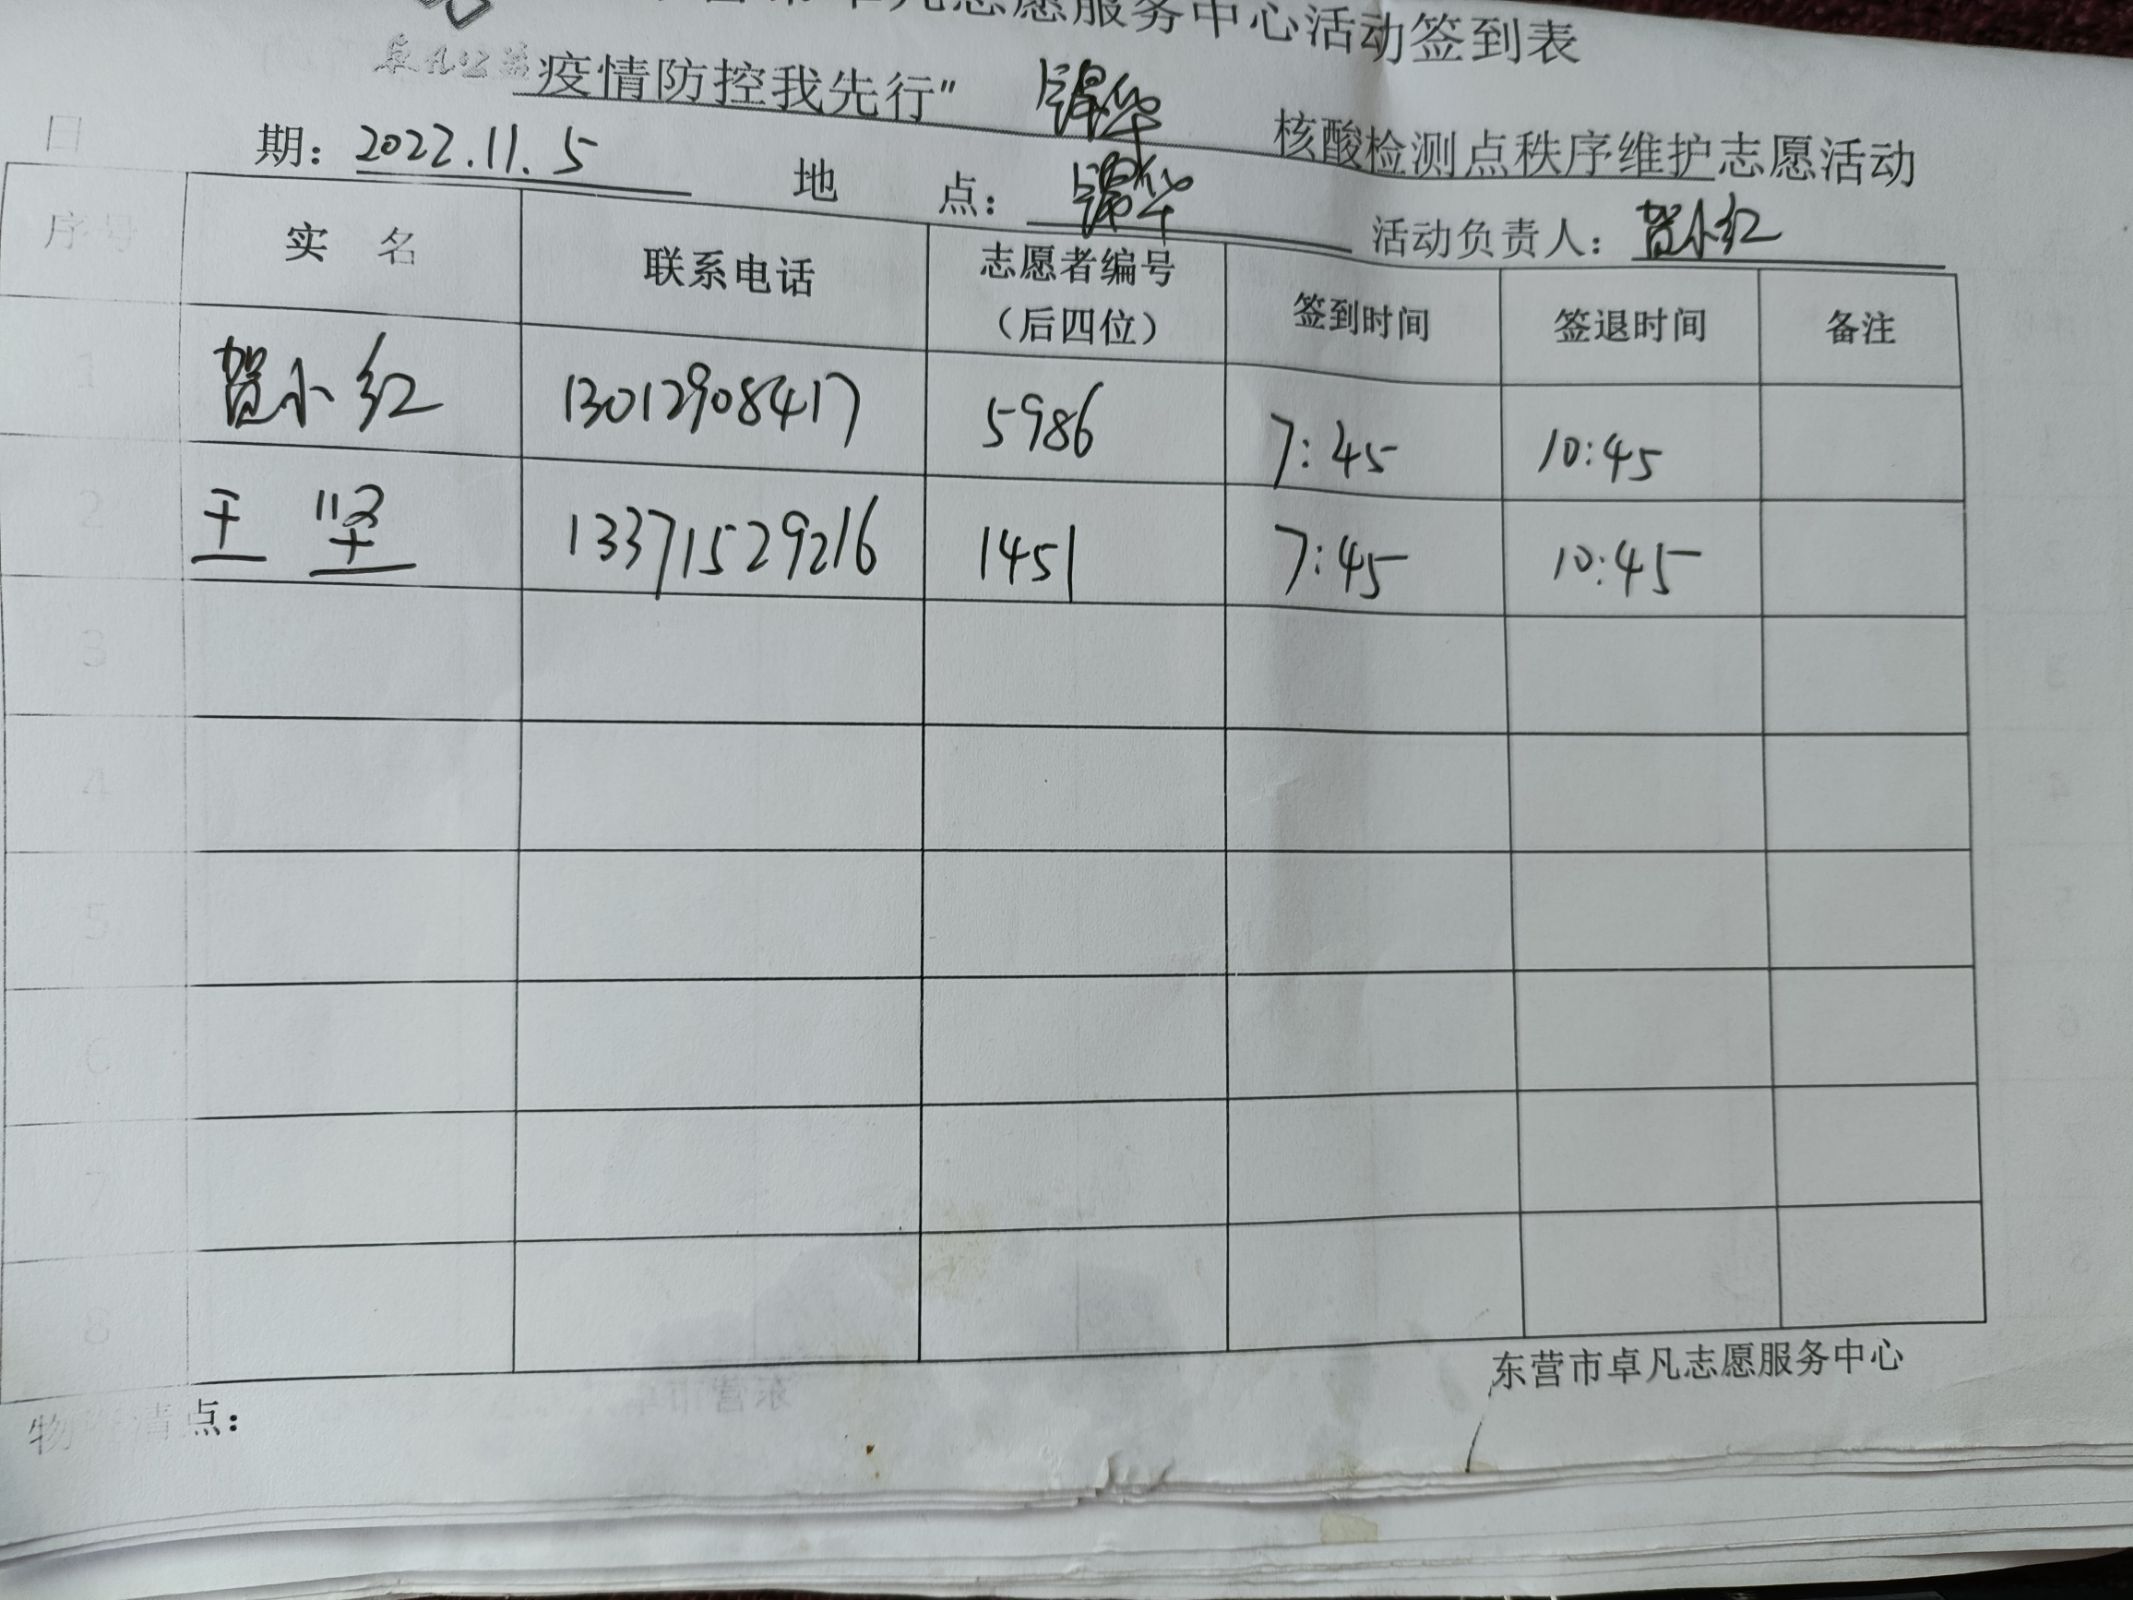 卓凡志愿服务中心活动签到表
卓凡公益
疫情防控我先行" 锦华 核酸检测点秩序维护志愿活动
日 期：2022.11.5 地 点：锦华 活动负责人：贺小红
序号 实 名 联系电话 志愿者编号（后四位） 签到时间 签退时间 备注
1 贺小红 13012908417 5986 7:45 10:45
2 王 坚 13371529216 1451 7:45 10:45
3
4
5
6
7
8
东营市卓凡志愿服务中心
物 清点：